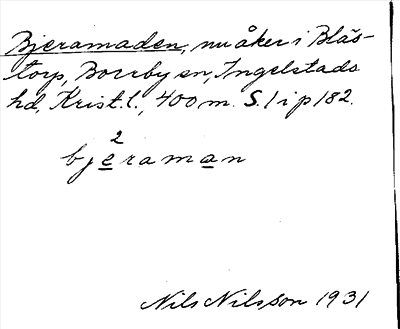 Bjeramaden, nu åker i Blås-
torp, Borrby sn, Ingelstads
hd, Krist. l., 400 m. S. / i p / 82.
2
bjeraman
Nils Nilsson 1931